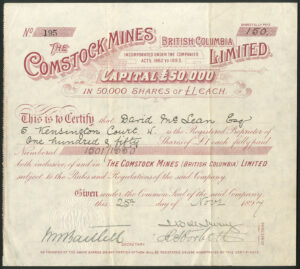 No 195
SHARES £1 EACH
150.
THE COMSTOCK MINES
BRITISH COLUMBIA
INCORPORATED UNDER THE COMPANIES
ACTS, 1862 TO 1893.
LIMITED.
CAPITAL £50,000
IN 50,000 SHARES OF £1 EACH.
This is to Certify that David McLean Esq
5 Kensington Court W. is the Registered Proprietor of
One hundred & fifty Shares of £1 each fully paid
Numbered 1501/1650
both inclusive, of and in THE COMSTOCK MINES (BRITISH COLUMBIA) LIMITED
subject to the Rules and Regulations of the said Company.
Given under the Common Seal of the said Company
this 25th day of Novr 1897
Wm Bartlett
SECRETARY
DIRECTORS
NO TRANSFER OF THE ABOVE SHARES OR ANY PORTION OF THEM WILL BE REGISTERED UNLESS ACCOMPANIED BY THIS CERTIFICATE